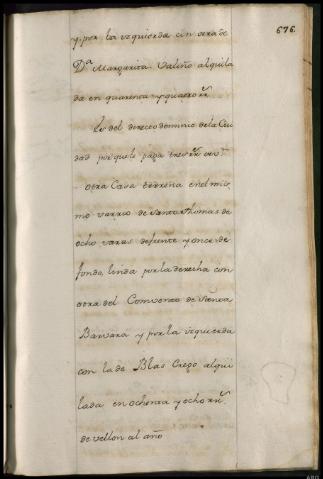 676.
y por la yzquierda con otra de
D.ª Margarita Valiño alquila
da en quarenta y quatro rr.ˢ
Es del directo dominio de la Ciu
dad por que le paga tres rr.ˢ
otra Casa terrena en el mis
mo varrio de Santo Thomas de
ocho varas de frente y once de
fondo, linda por la derecha con
otra del Comvento de Santa
Barvara y por la yzquierda
con la de Blas Crego alqui
lada en ochenta y ocho rr.ˢ
de vellon al año